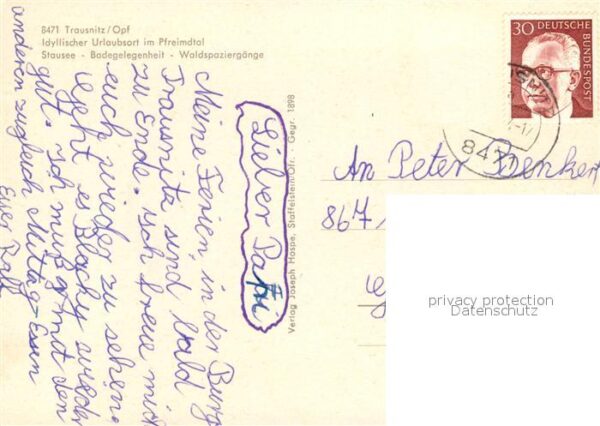 8471 Trausnitz/Opf
Idyllischer Urlaubsort im Pfreimdtal
Stausee - Badegelegenheit - Waldspaziergänge
Lieber Patti
Meine Ferien in der Burg
Trausnitz sind bald
zu Ende. Ich freue mich
euch wieder zu sehen.
geht es Blacky wieder
gut. Ich muß mit den
anderen zugleich Mittag-Essen
Euer Ralf
Verlag Joseph Hospe, Staffelstein/Ofr. - Gegr. 1898
30
DEUTSCHE BUNDESPOST
8471
An Peter Benkert
867
privacy protection
Datenschutz